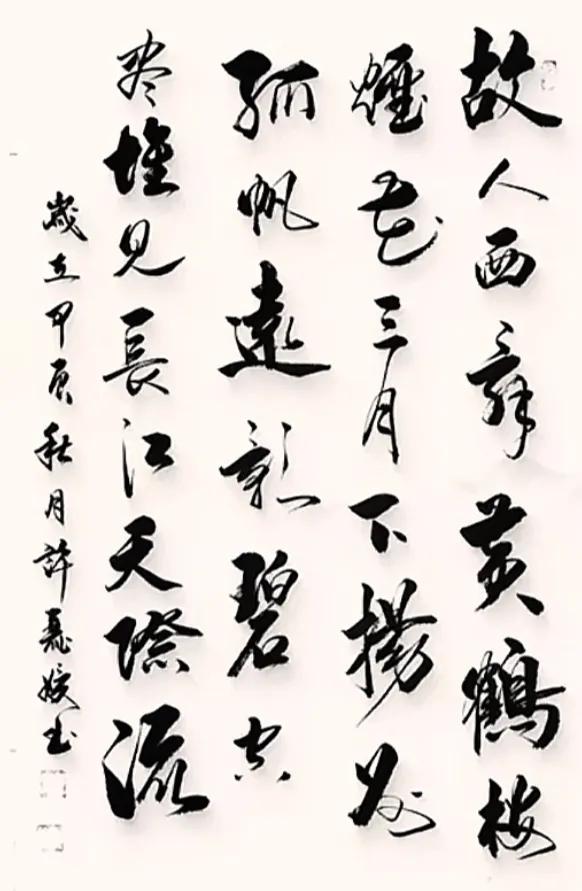 故人西辭黃鶴樓
煙花三月下揚州
孤帆遠影碧空
尽惟見長江天際流
歲在甲辰秋月許書